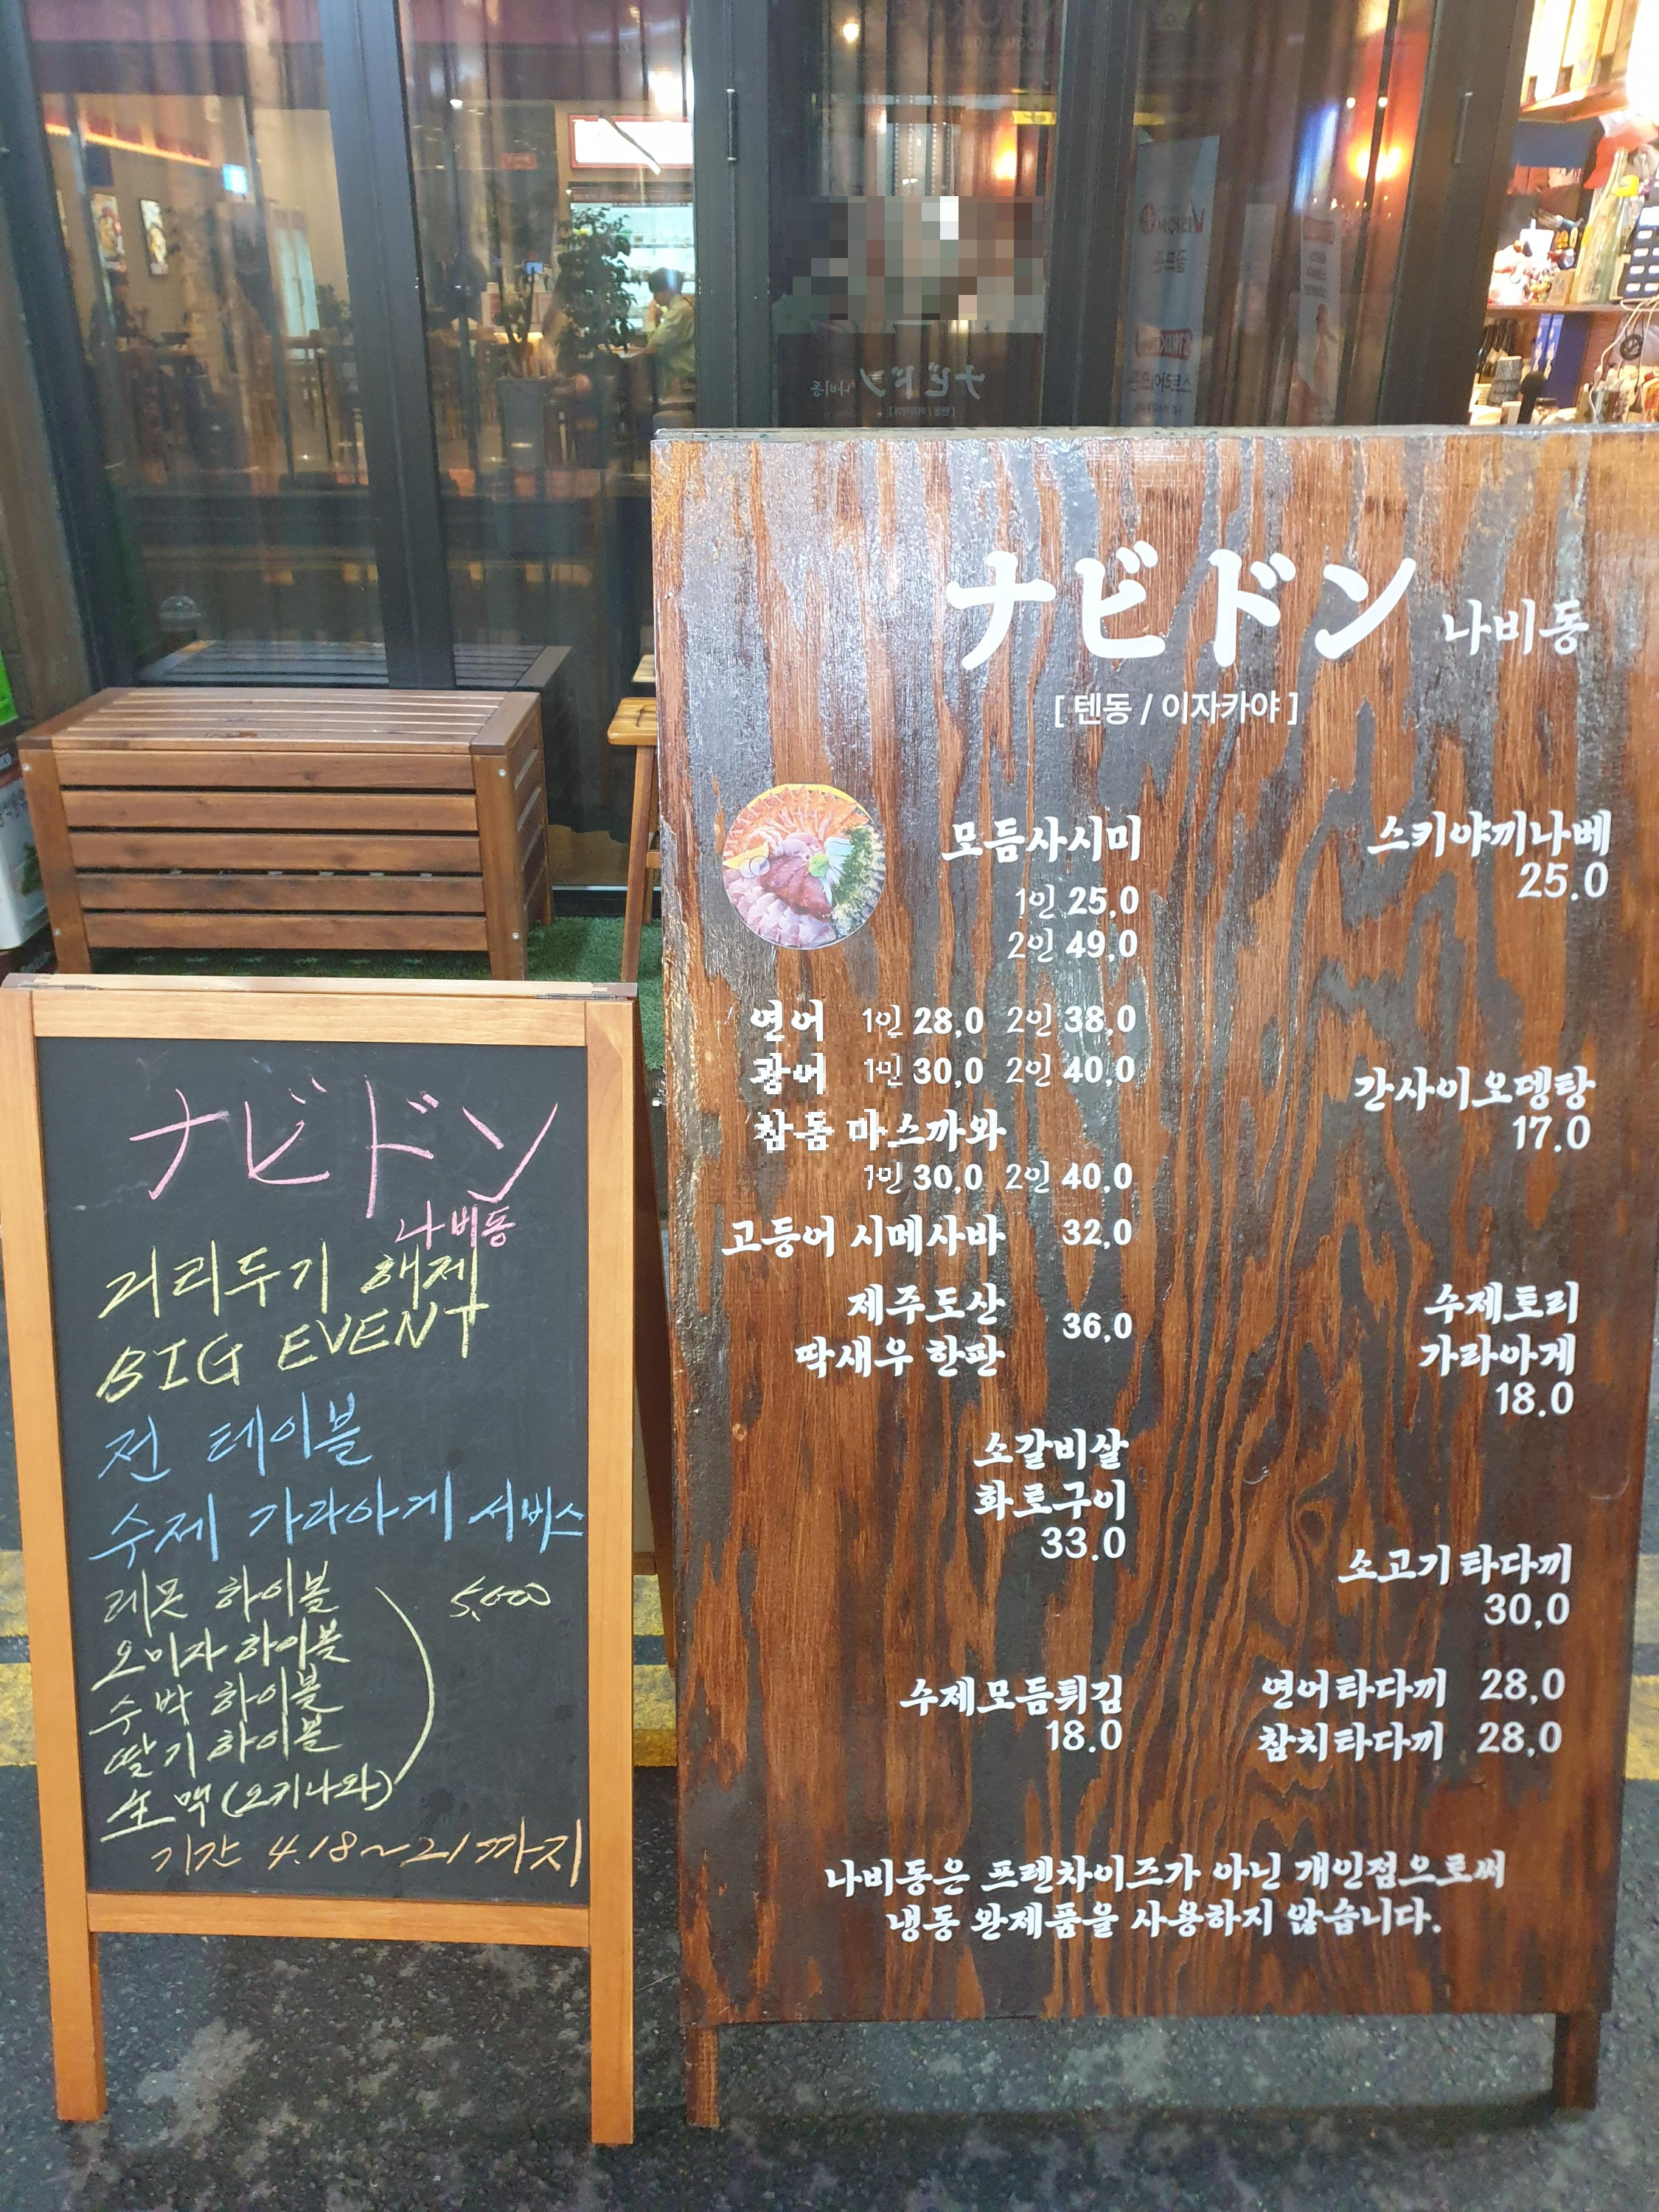 ナビドン 나비동
[ 텐동 / 이자카야 ]
모듬사시미
1인 25,0
2인 49,0
연어 1인 28,0 2인 38,0
광어 1인 30,0 2인 40,0
참돔 마스까와
1인 30,0 2인 40,0
고등어 시메사바 32,0
제주도산
딱새우 한판 36,0
소갈비살
화로구이
33.0
수제모듬튀김
18.0
스키야끼나베
25.0
간사이오뎅탕
17.0
수제토리
가라아게
18.0
소고기 타다끼
30,0
연어타다끼 28,0
참치타다끼 28,0
나비동은 프렌차이즈가 아닌 개인점으로써
냉동 완제품을 사용하지 않습니다.
ナビドン
나비동
거리두기 해제
BIG EVENT
전 테이블
수제 가라아게 서비스
레몬 하이볼 5,000
오미자 하이볼
수박 하이볼
딸기 하이볼
生맥 (오키나와)
기간 4.18~21까지